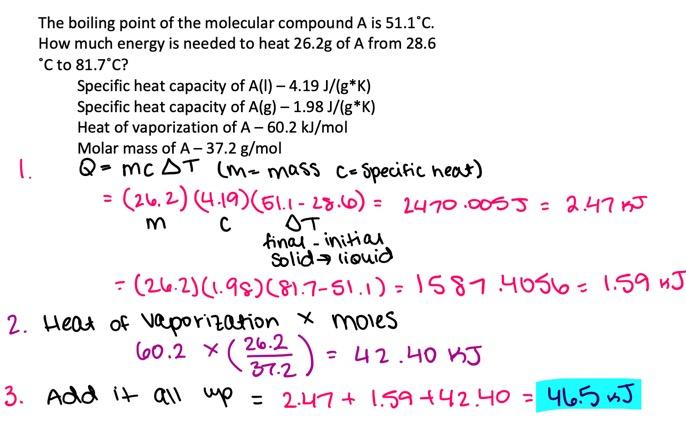 The boiling point of the molecular compound A is 51.1˚C.
How much energy is needed to heat 26.2g of A from 28.6
˚C to 81.7˚C?
Specific heat capacity of A(l) – 4.19 J/(g*K)
Specific heat capacity of A(g) – 1.98 J/(g*K)
Heat of vaporization of A – 60.2 kJ/mol
Molar mass of A – 37.2 g/mol
1. Q = mc ΔT (m= mass c= specific heat)
= (26.2) (4.19) (51.1 - 28.6) = 2470.005 J = 2.47 kJ
m c ΔT
final - initial
solid → liquid
= (26.2) (1.98) (81.7-51.1) = 1587.4056 = 1.59 kJ
2. Heat of vaporization × moles
60.2 × (26.2/37.2) = 42.40 kJ
3. Add it all up = 2.47 + 1.59 + 42.40 = 46.5 kJ